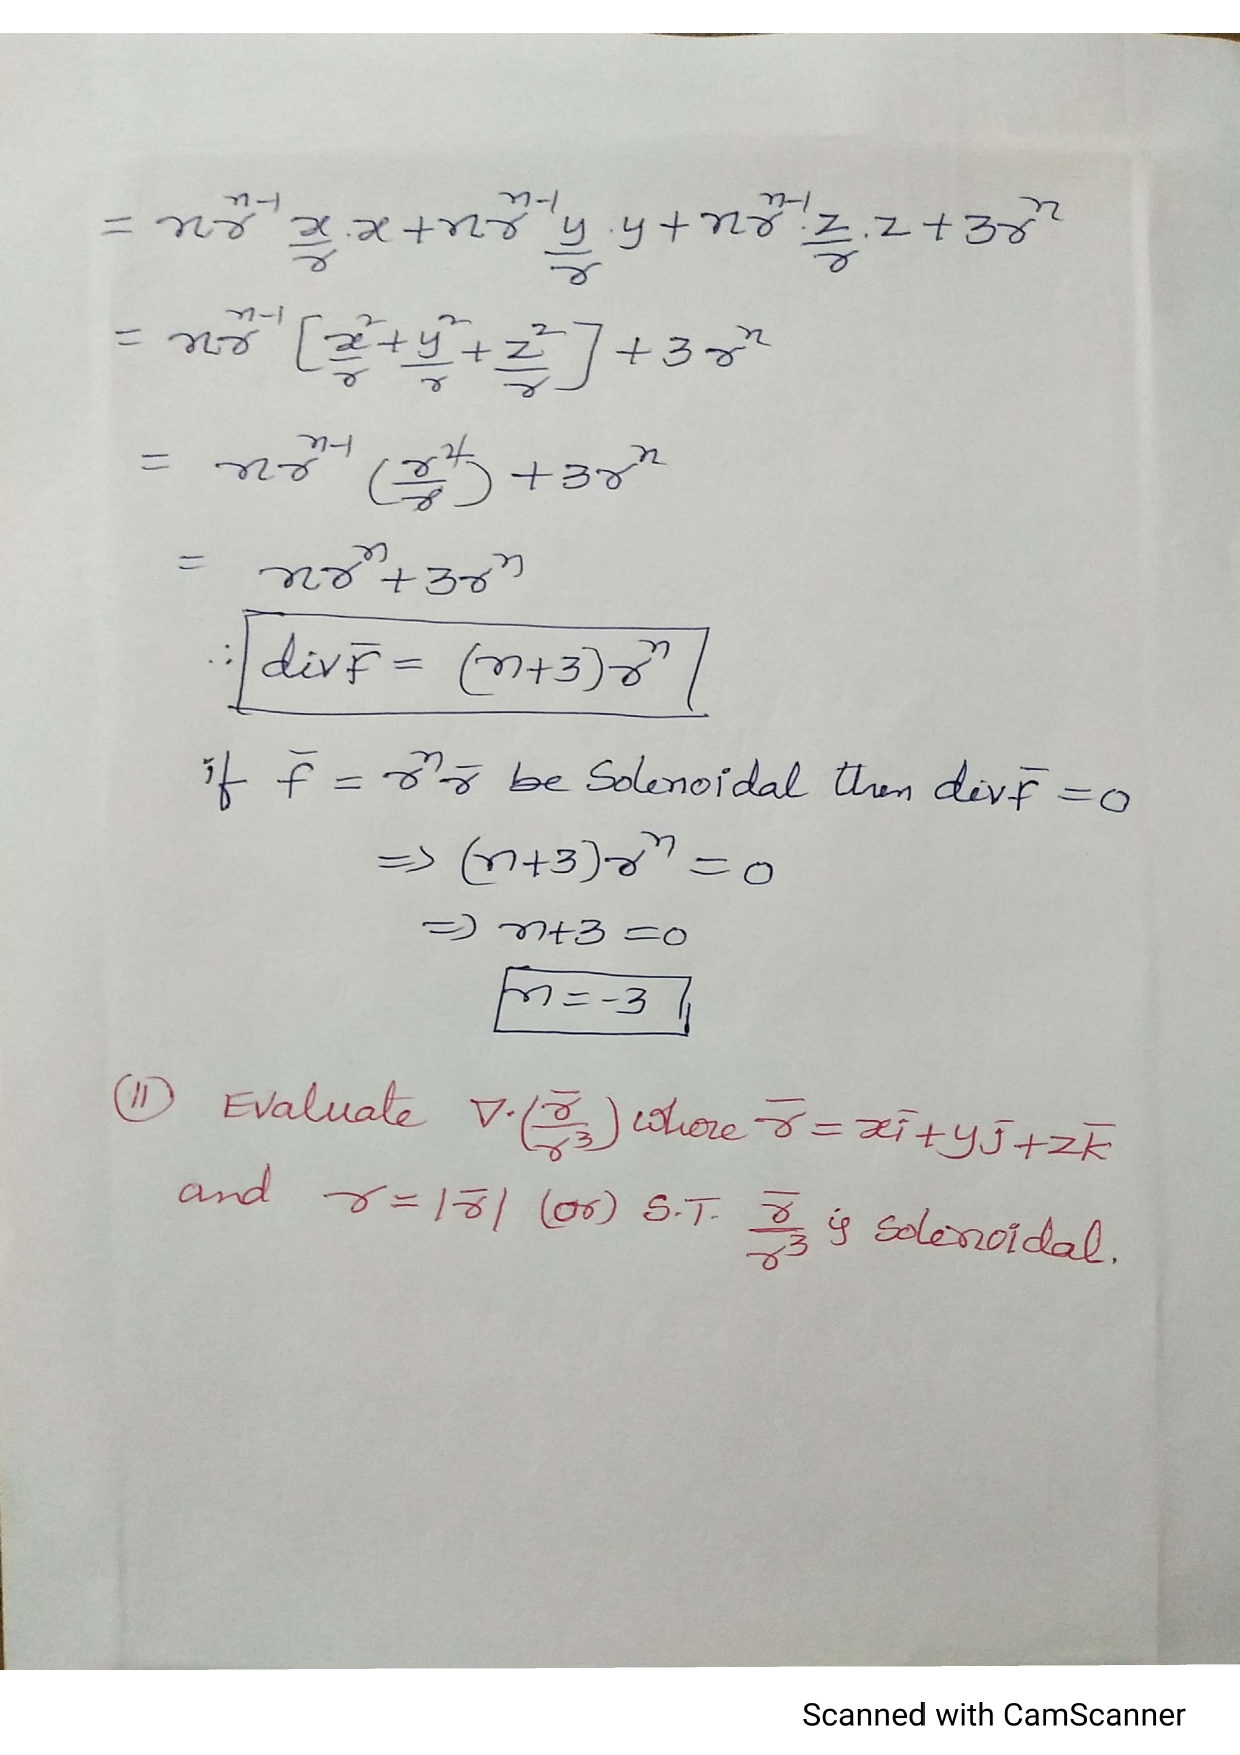 = nr^{n-1} x/r · x + nr^{n-1} y/r · y + nr^{n-1} · z/r · z + 3r^n
= nr^{n-1} [x²/r + y²/r + z²/r] + 3r^n
= nr^{n-1} (r²/r) + 3r^n
= nr^n + 3r^n
∴ div f̄ = (n+3)r^n
if f̄ = r^n r̄ be Solenoidal then div f̄ = 0
=> (n+3)r^n = 0
=> n+3 = 0
n = -3
(11) Evaluate ∇·(r̄/r³) where r̄ = xī + yj̄ + zk̄
and r = |r̄| (or) S.T. r̄/r³ is solenoidal.
Scanned with CamScanner